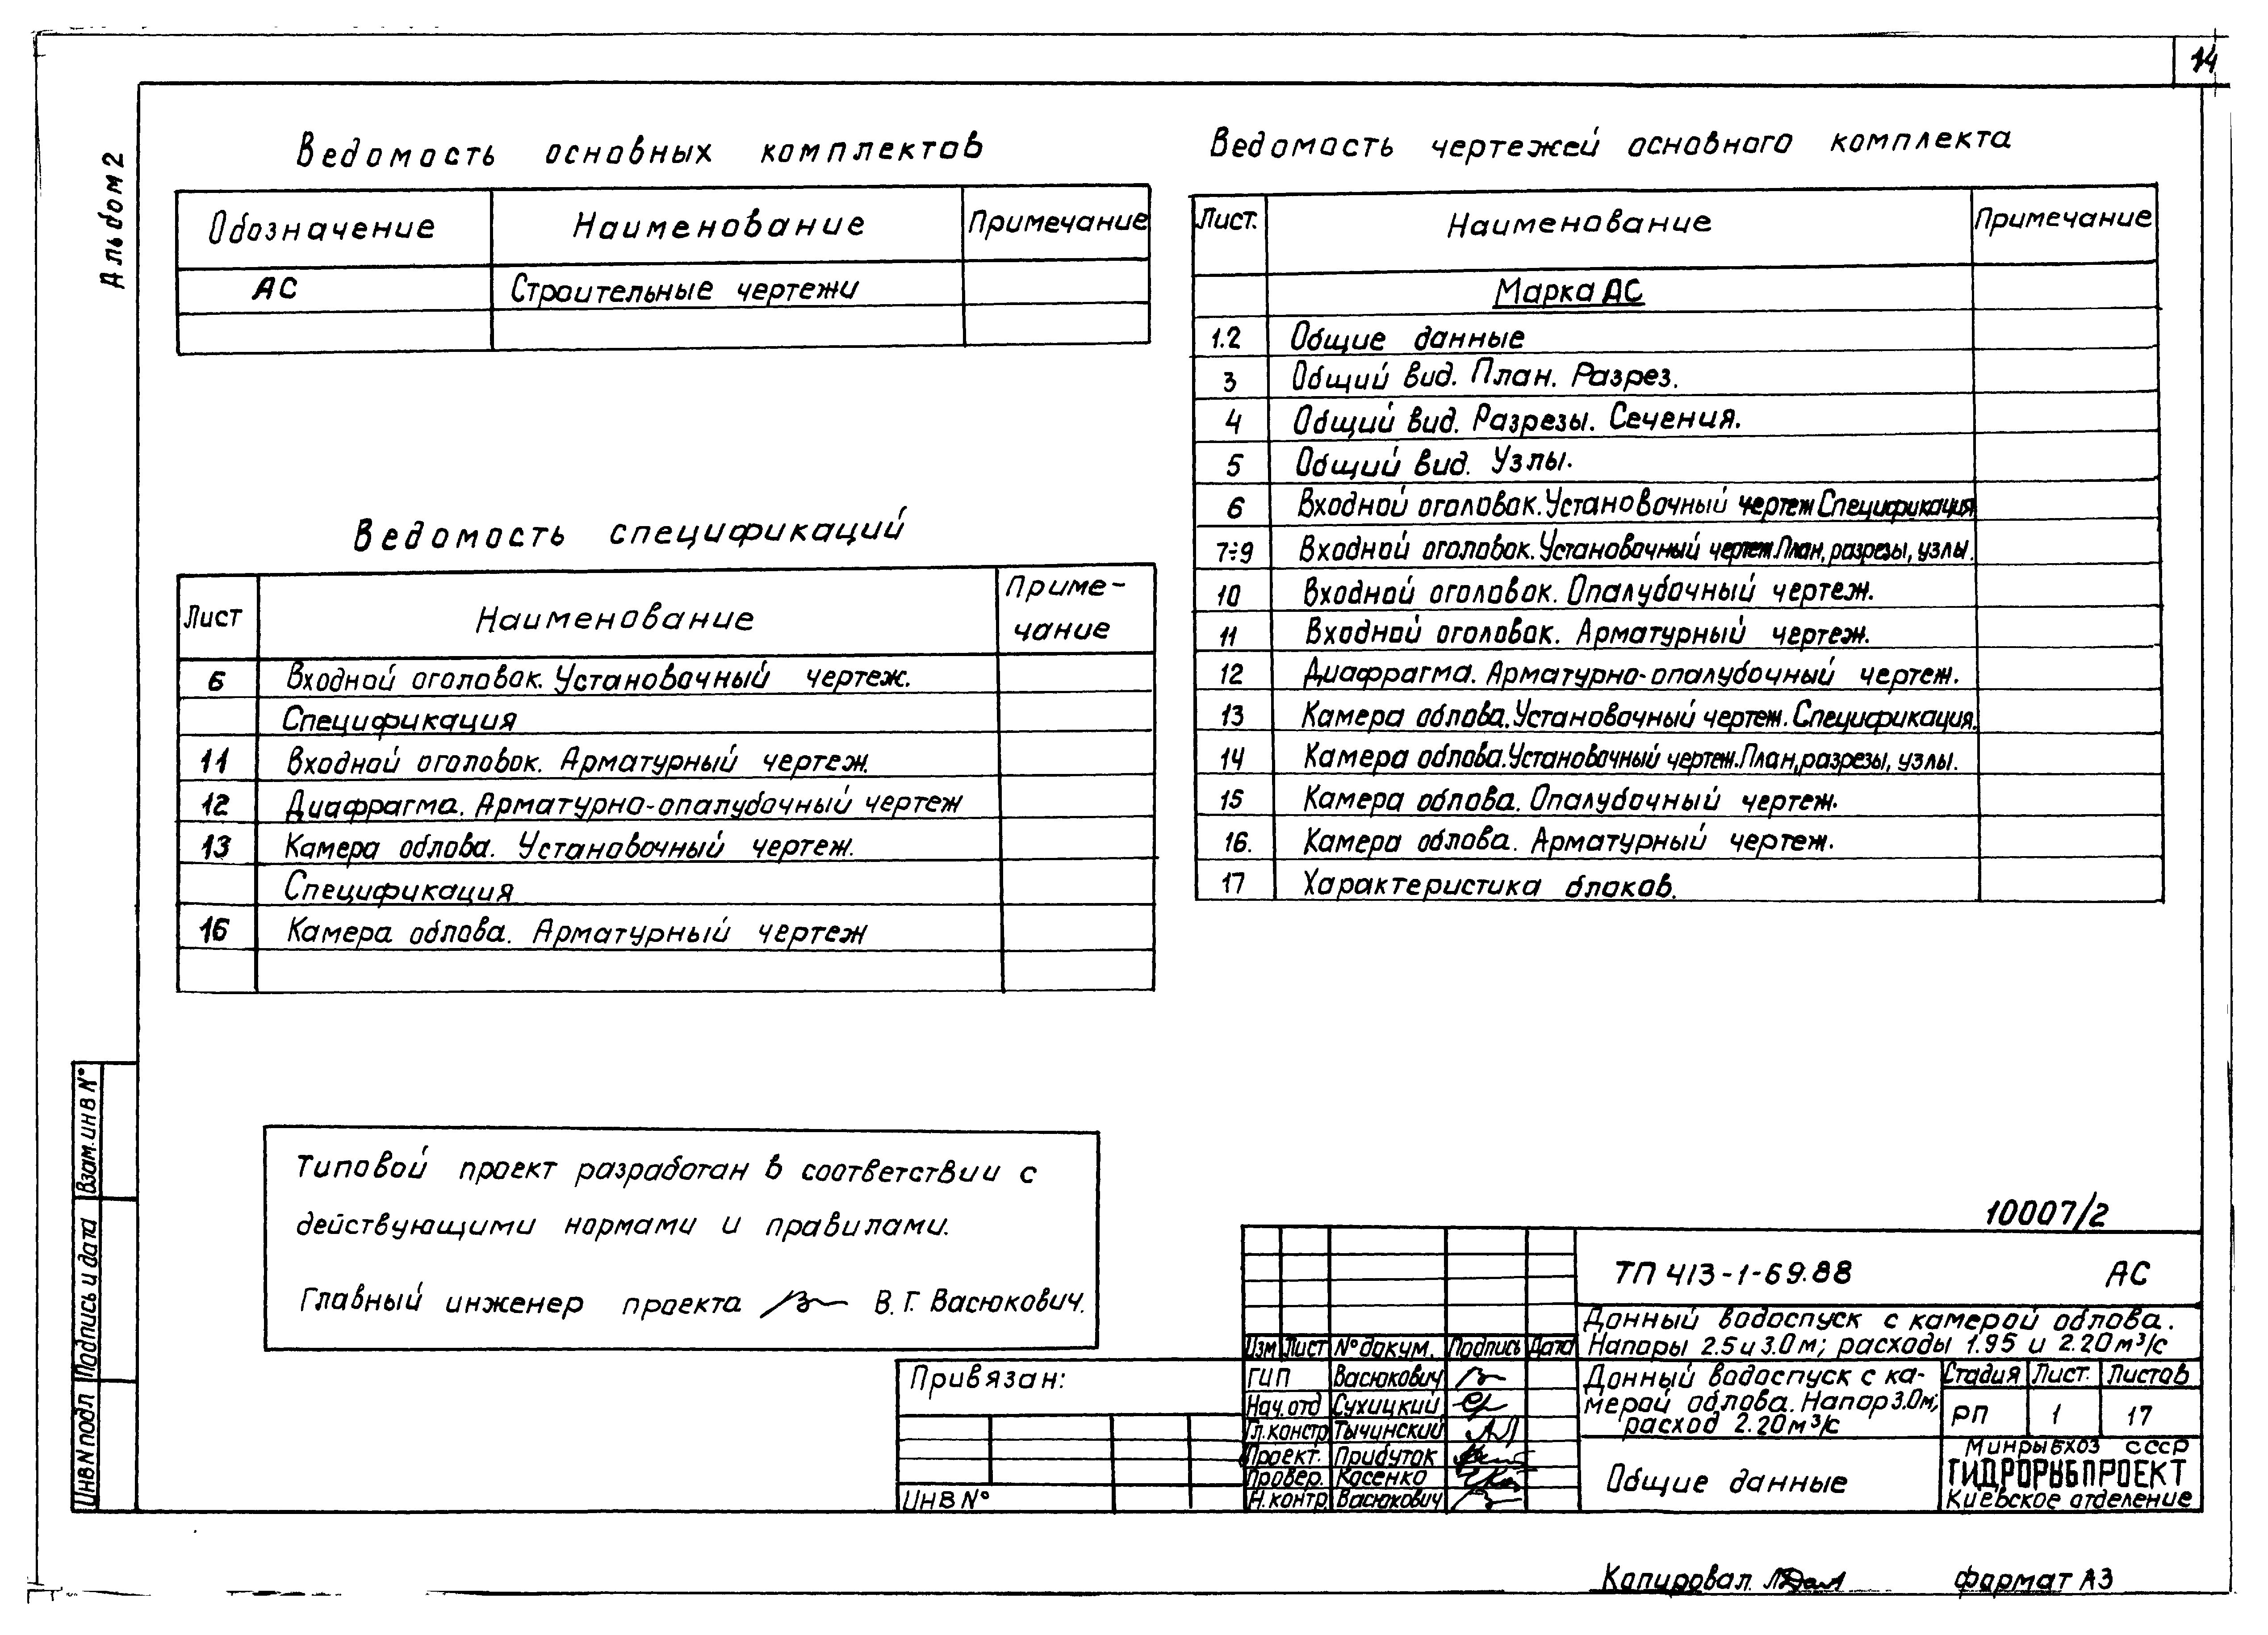 14
Альбом 2
Ведомость основных комплектов
Обозначение Наименование Примечание
АС Строительные чертежи
Ведомость спецификаций
Лист Наименование Приме-
чание
6 Входной оголовок. Установочный чертеж.
Спецификация
11 Входной оголовок. Арматурный чертеж.
12 Диафрагма. Арматурно-опалубочный чертеж
13 Камера облова. Установочный чертеж.
Спецификация
16 Камера облова. Арматурный чертеж
Ведомость чертежей основного комплекта
Лист. Наименование Примечание
Марка АС
1.2 Общие данные
3 Общий вид. План. Разрез.
4 Общий вид. Разрезы. Сечения.
5 Общий вид. Узлы.
6 Входной оголовок. Установочный чертеж Спецификация
7÷9 Входной оголовок. Установочный чертеж План, разрезы, узлы.
10 Входной оголовок. Опалубочный чертеж.
11 Входной оголовок. Арматурный чертеж.
12 Диафрагма. Арматурно-опалубочный чертеж.
13 Камера облова. Установочный чертеж. Спецификация.
14 Камера облова. Установочный чертеж. План, разрезы, узлы.
15 Камера облова. Опалубочный чертеж.
16. Камера облова. Арматурный чертеж.
17 Характеристика блоков.
Типовой проект разработан в соответствии с
действующими нормами и правилами.
Главный инженер проекта В. Г. Васюкович.
Взам. инв N°
Подпись и дата
Инв N подл
Привязан:
Инв N°
10007/2
ТП 413-1-69.88 АС
Донный водоспуск с камерой облова.
Напоры 2.5 и 3.0 м; расходы 1.95 и 2.20 м³/с
Изм Лист N° докум. Подпись Дата
ГИП Васюкович
Нач. отд Сухицкий
Гл. констр Тычинский
Проект. Прибуток
Провер. Косенко
Н. контр Васюкович
Донный водоспуск с ка-
мерой облова. Напор 3.0 м;
расход 2.20 м³/с
Стадия Лист. Листов
РП 1 17
Общие данные
Минрыбхоз СССР
ГИДРОРЫБПРОЕКТ
Киевское отделение
Копировал. формат А3